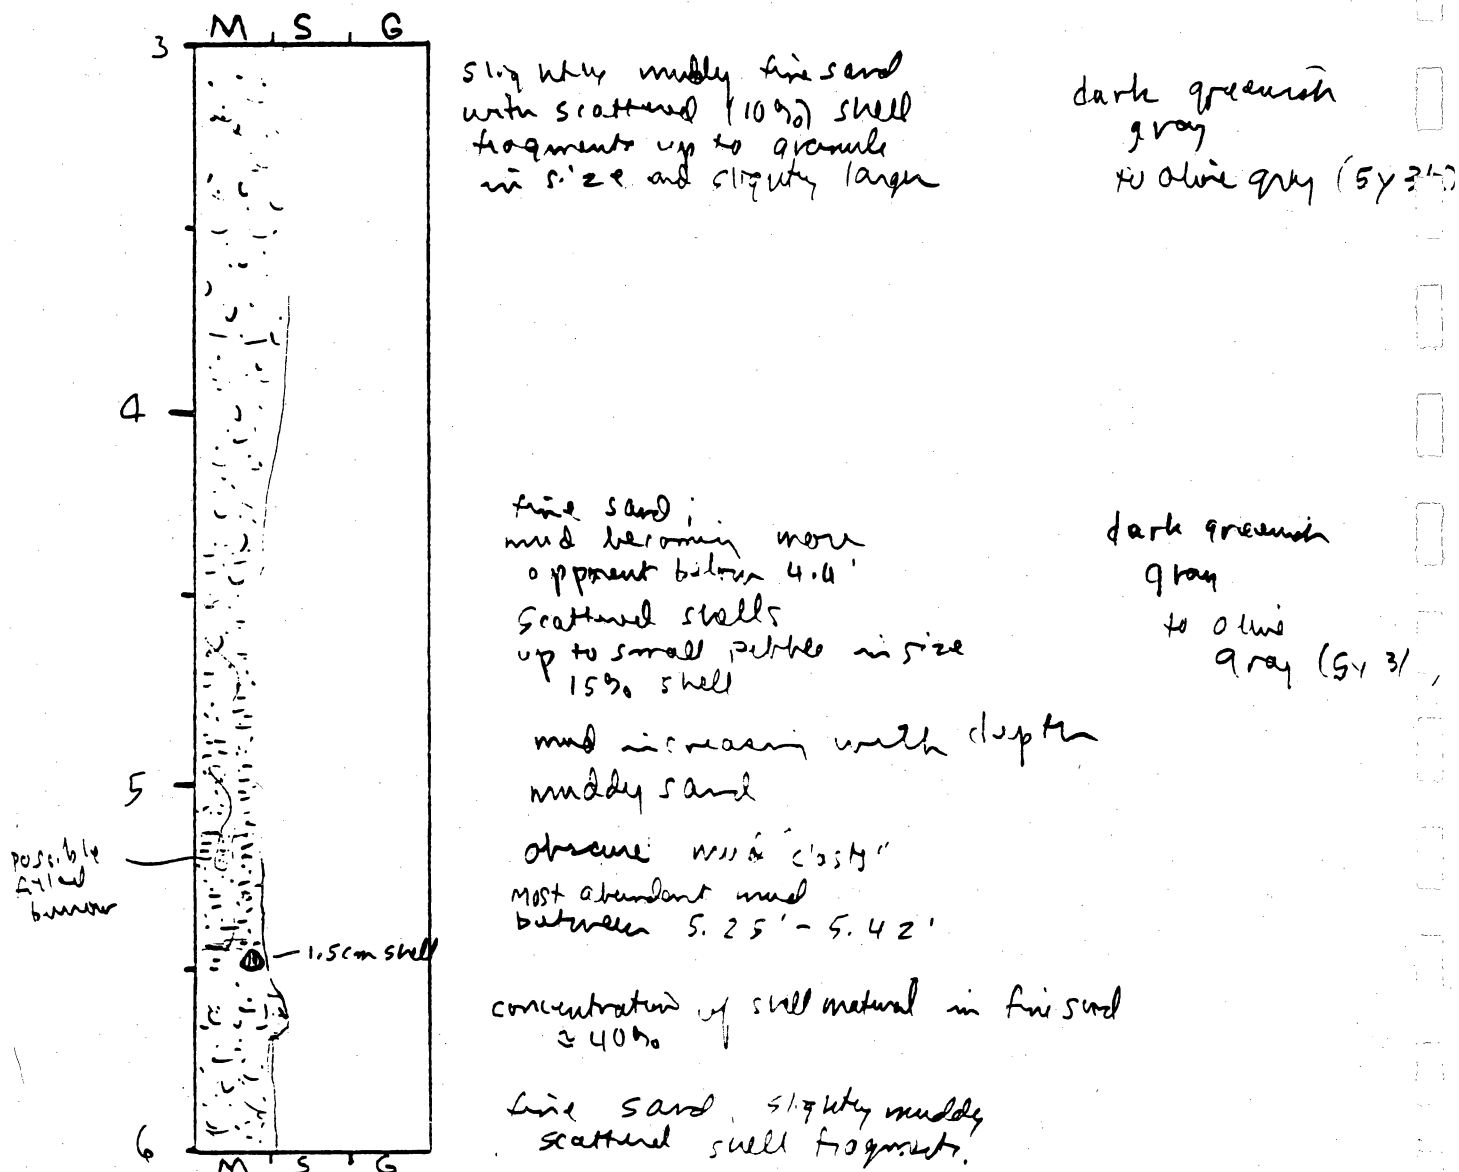 M S G
3
slightly muddy fine sand
with scattered (10%) shell
fragments up to granule
in size and slightly larger
dark greenish
gray
to olive gray (5Y 3/
4
fine sand;
mud becoming more
apparent below 4.4'
scattered shells
up to small pebble in size
15% shell
dark greenish
gray
to olive
gray (5Y 3/
mud increasing with depth
5
muddy sand
possible
filled
burrow
obscure
most abundant mud
between 5.25' - 5.42'
1.5cm shell
concentration of shell material in fine sand
≈ 40%
fine sand, slightly muddy
scattered shell fragments.
6
M S G